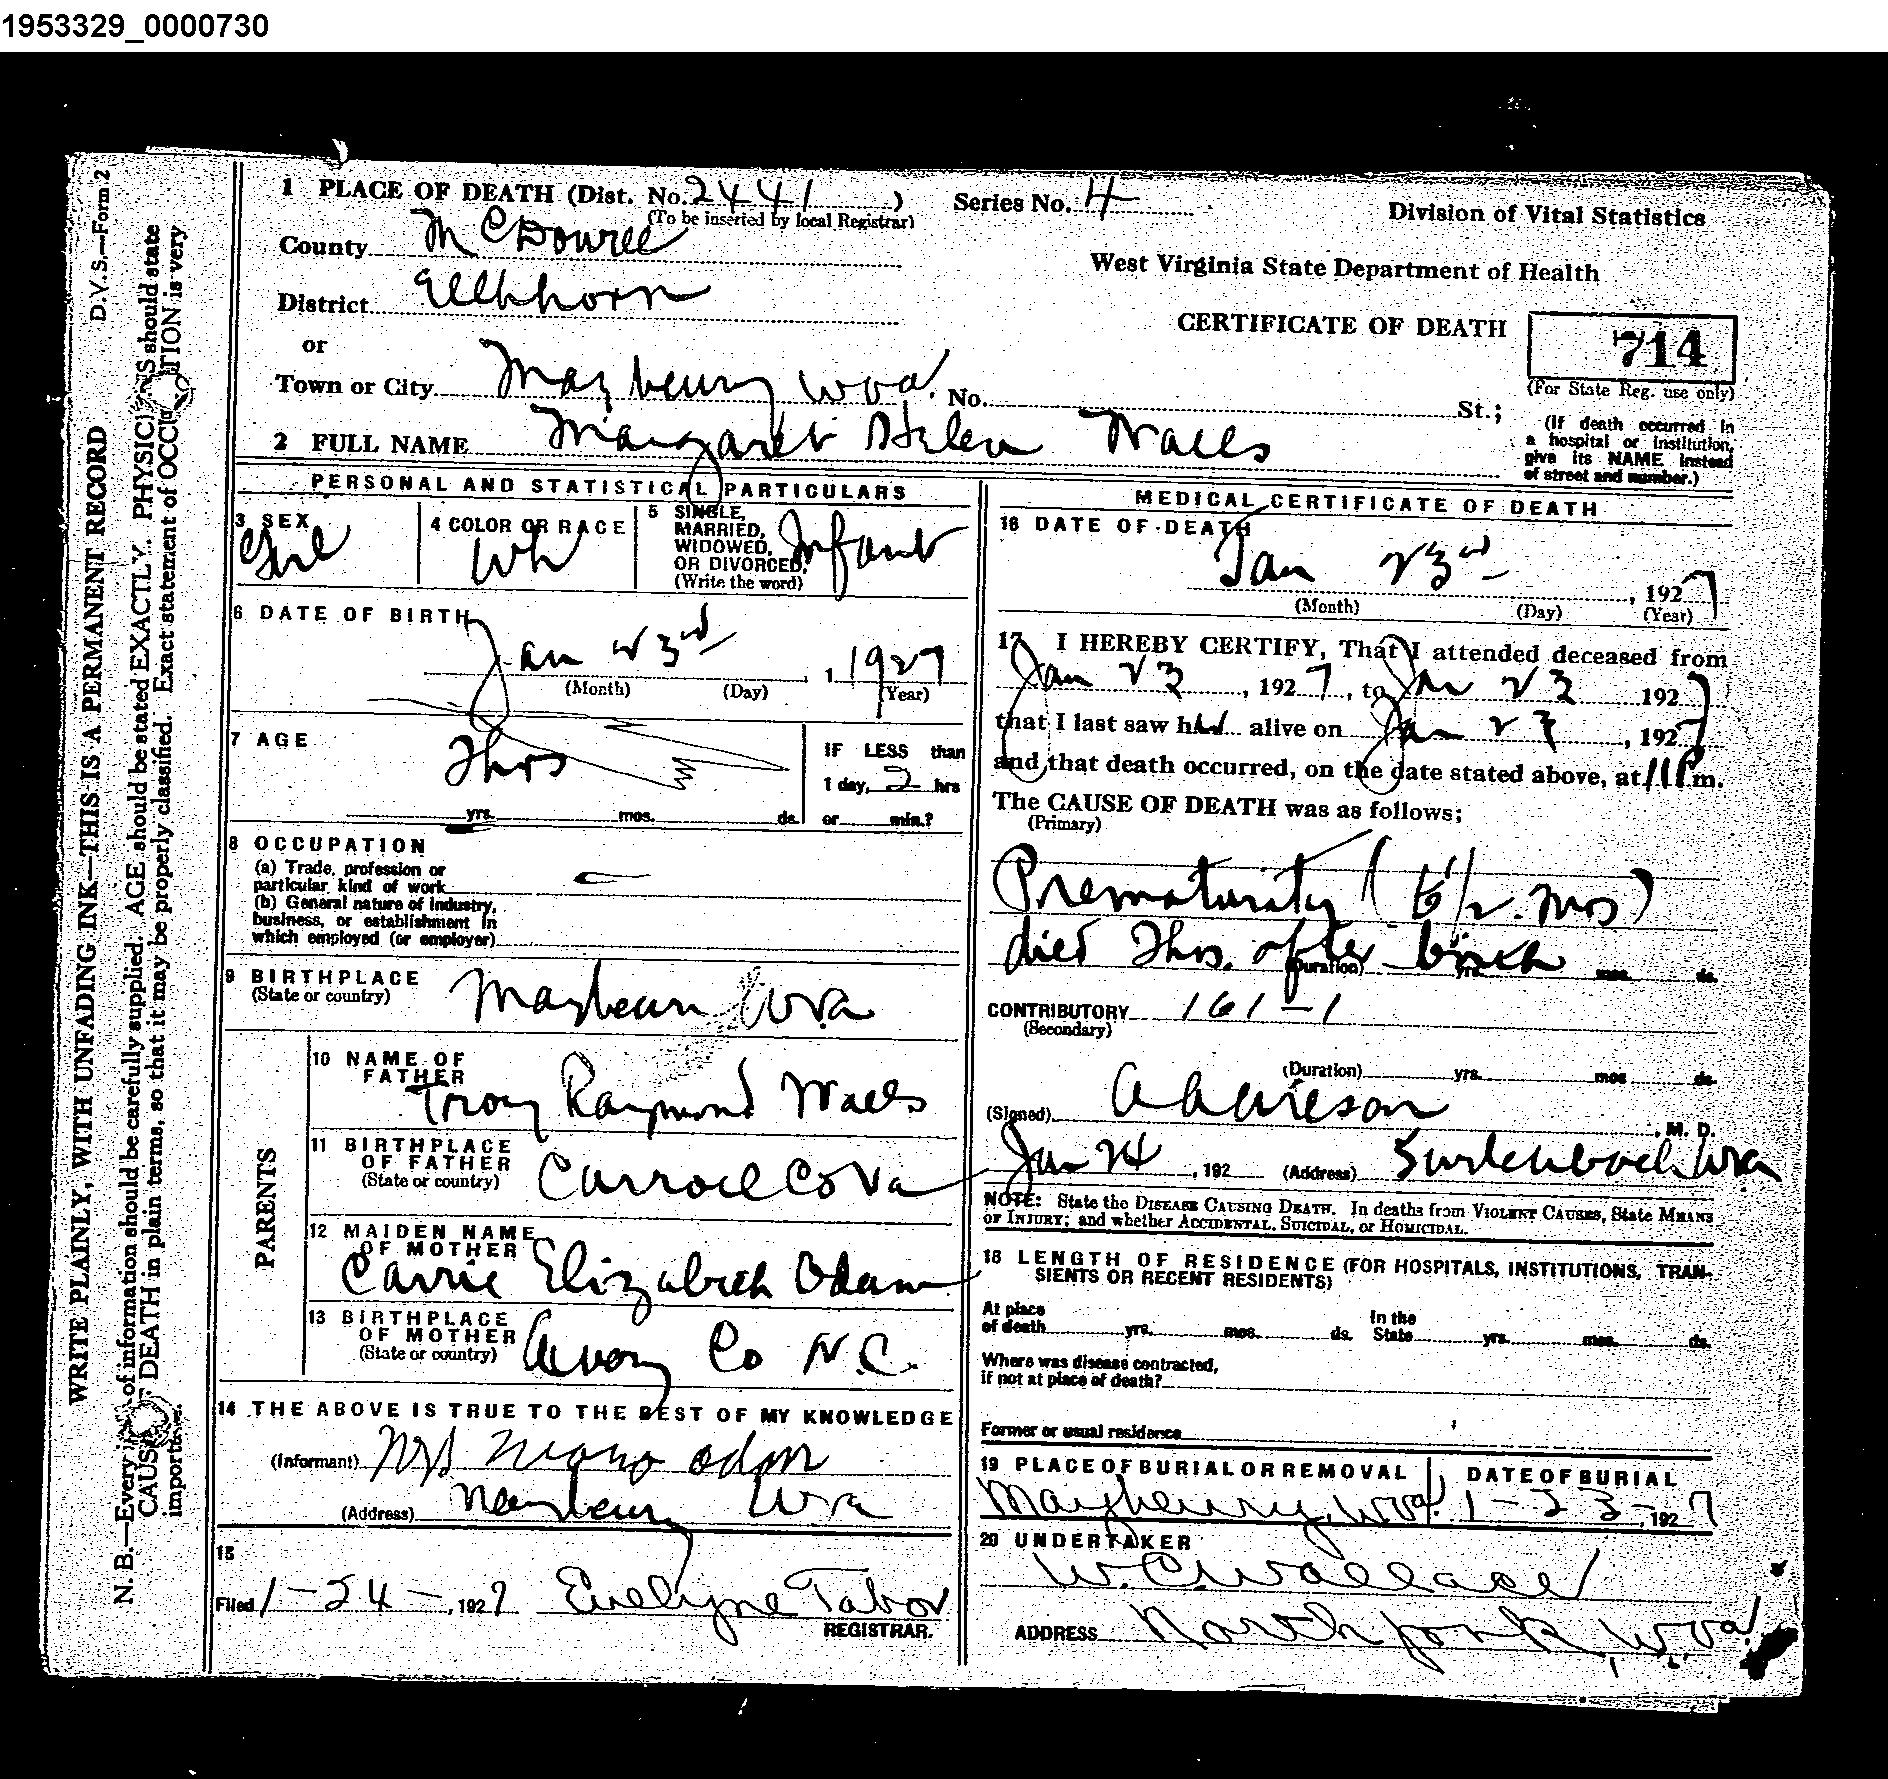 1953329_0000730
D.V.S.—Form 2
WRITE PLAINLY, WITH UNFADING INK—THIS IS A PERMANENT RECORD
N. B.—Every of information should be carefully supplied. AGE should be stated EXACTLY. PHYSICI S should state
CAUS DEATH in plain terms, so that it may be properly classified. Exact statement of OCCU TION is very
important.
1 PLACE OF DEATH (Dist. No. 2441 )
(To be inserted by local Registrar)
Series No. 4
Division of Vital Statistics
County McDowell
West Virginia State Department of Health
District Elkhorn
CERTIFICATE OF DEATH
714
(For State Reg. use only)
or
Town or City Maybeury W Va. No. St.;
(If death occurred in
a hospital or institution,
give its NAME instead
of street and number.)
2 FULL NAME Margaret Helen Walls
PERSONAL AND STATISTICAL PARTICULARS
3 SEX
Girl
4 COLOR OR RACE
Wh
5 SINGLE,
MARRIED,
WIDOWED,
OR DIVORCED,
(Write the word)
Infant
6 DATE OF BIRTH
Jan 23rd , 1 1927
(Month) (Day) (Year)
7 AGE
2hrs
yrs. mos. ds.
IF LESS than
1 day, 2 hrs
or min.?
8 OCCUPATION
(a) Trade, profession or
particular kind of work
(b) General nature of industry,
business, or establishment in
which employed (or employer)
9 BIRTHPLACE
(State or country)
Maybeury W Va
PARENTS
10 NAME OF
FATHER
Troy Raymond Walls
11 BIRTHPLACE
OF FATHER
(State or country)
Carroll Co Va
12 MAIDEN NAME
OF MOTHER
Carrie Elizabeth Odam
13 BIRTHPLACE
OF MOTHER
(State or country)
Avery Co N.C.
14 THE ABOVE IS TRUE TO THE BEST OF MY KNOWLEDGE
(Informant) Mrs odm
(Address) Maybeury W Va
15
Filed 1-24-, 1927 Evelyne Tabor
REGISTRAR.
MEDICAL CERTIFICATE OF DEATH
16 DATE OF DEATH
Jan 23rd , 1927
(Month) (Day) (Year)
17 I HEREBY CERTIFY, That I attended deceased from
Jan 23 , 1927, to Jan 23 1927
that I last saw her alive on Jan 23 , 1927
and that death occurred, on the date stated above, at 11 P m.
The CAUSE OF DEATH was as follows;
(Primary)
Prematurity (6 1/2 mos)
died 2hrs. after birth
(Duration) yrs. mos. ds.
CONTRIBUTORY 161-1
(Secondary)
(Duration) yrs. mos. ds.
(Signed) , M. D.
Jan 24 , 192 (Address) W Va
NOTE: State the DISEASE CAUSING DEATH. In deaths from VIOLENT CAUSES, State MEANS
OF INJURY; and whether ACCIDENTAL, SUICIDAL, or HOMICIDAL.
18 LENGTH OF RESIDENCE (FOR HOSPITALS, INSTITUTIONS, TRAN-
SIENTS OR RECENT RESIDENTS)
At place
of death yrs. mos. ds.
In the
State yrs. mos. ds.
Where was disease contracted,
if not at place of death?
Former or usual residence
19 PLACE OF BURIAL OR REMOVAL
Maybeury, W Va.
DATE OF BURIAL
1-23-, 1927
20 UNDERTAKER
W.C. Wallace
ADDRESS North fork, W. Va.